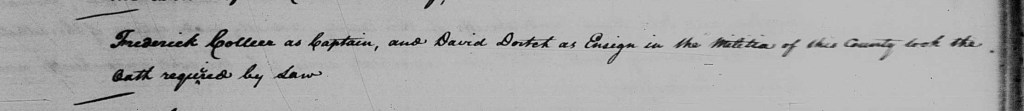 Frederick Colleer as Captain, and David Dortch as Ensign in the Militia of this County took the
Oath required by Law